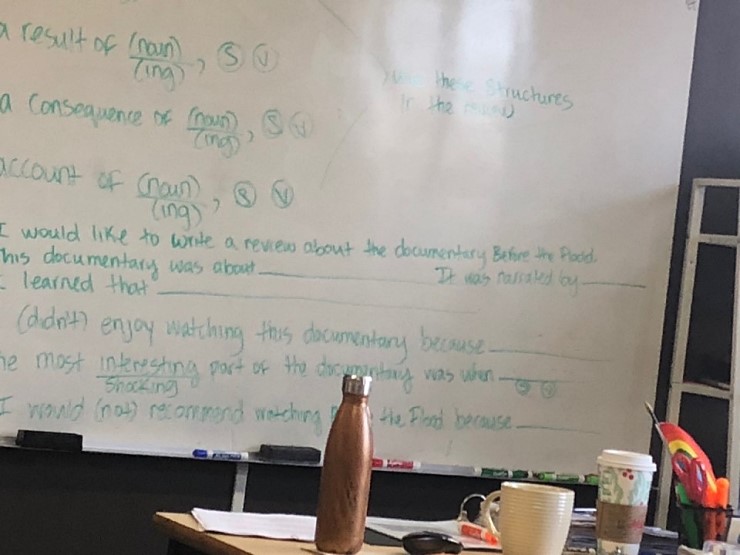 a result of (noun) , Ⓢ Ⓥ
(ing)
a consequence of (noun) , Ⓢ Ⓥ
(ing)
account of (noun) , Ⓢ Ⓥ
(ing)
these structures
in the
I would like to write a review about the documentary Before the Flood.
This documentary was about ________ It was narrated by ______
I learned that ________
(didn't) enjoy watching this documentary because ________
he most interesting part of the documentary was when ______
shocking Ⓢ Ⓥ
I would (not) recommend watching the Flood because ______